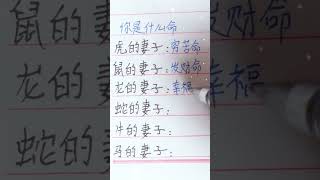 你是什么命
虎的妻子:穷苦命
鼠的妻子:发财命
龙的妻子:幸福
蛇的妻子:
牛的妻子:
马的妻子: